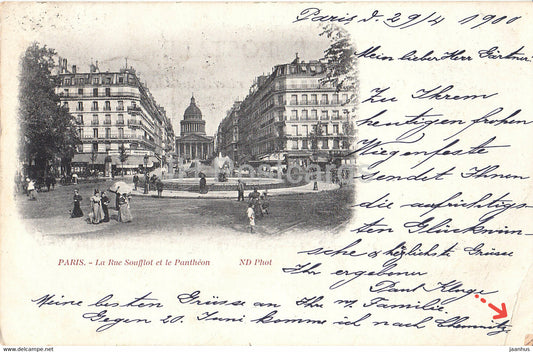 Paris d. 29/4 1900
Mein lieber Herr Gärtner!
Zu Ihrem
heutigen frohen
Wiegenfeste
sendet Ihnen
die aufrichtigs-
ten Glückwün-
sche & herzlichste Grüsse
Ihr ergebener
Paul Kluge
Meine besten Grüsse an Ihr w. Familie.
Gegen 20. Juni komme ich nach Chemnitz
PARIS. - La Rue Soufflot et le Panthéon ND Phot
www.jaanhus.delcampe.net
by jaanhus